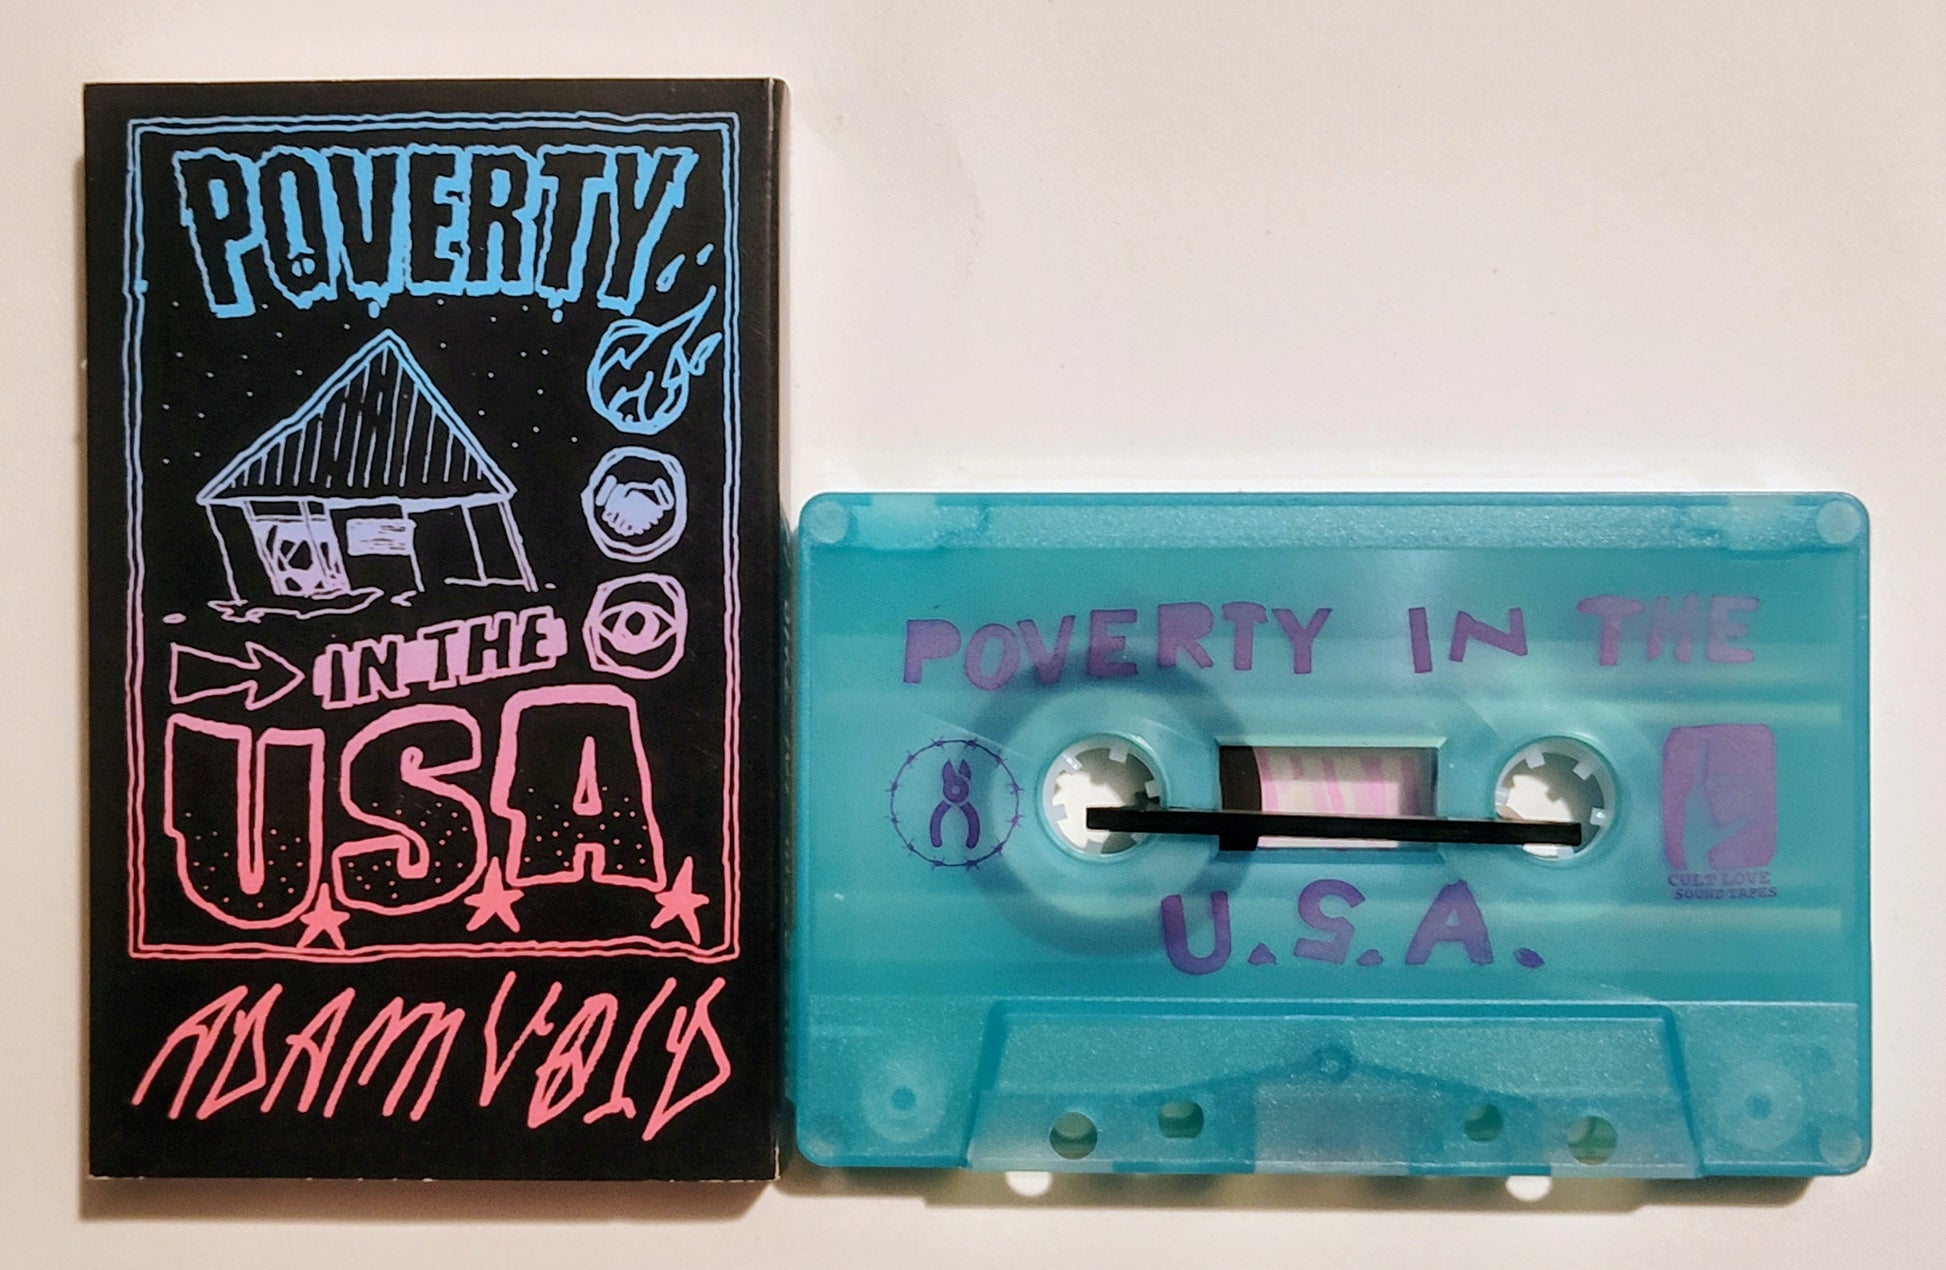 POVERTY
IN THE
U.S.A.
ADAM VOID
POVERTY IN THE
U.S.A.
CULT LOVE
SOUND TAPES